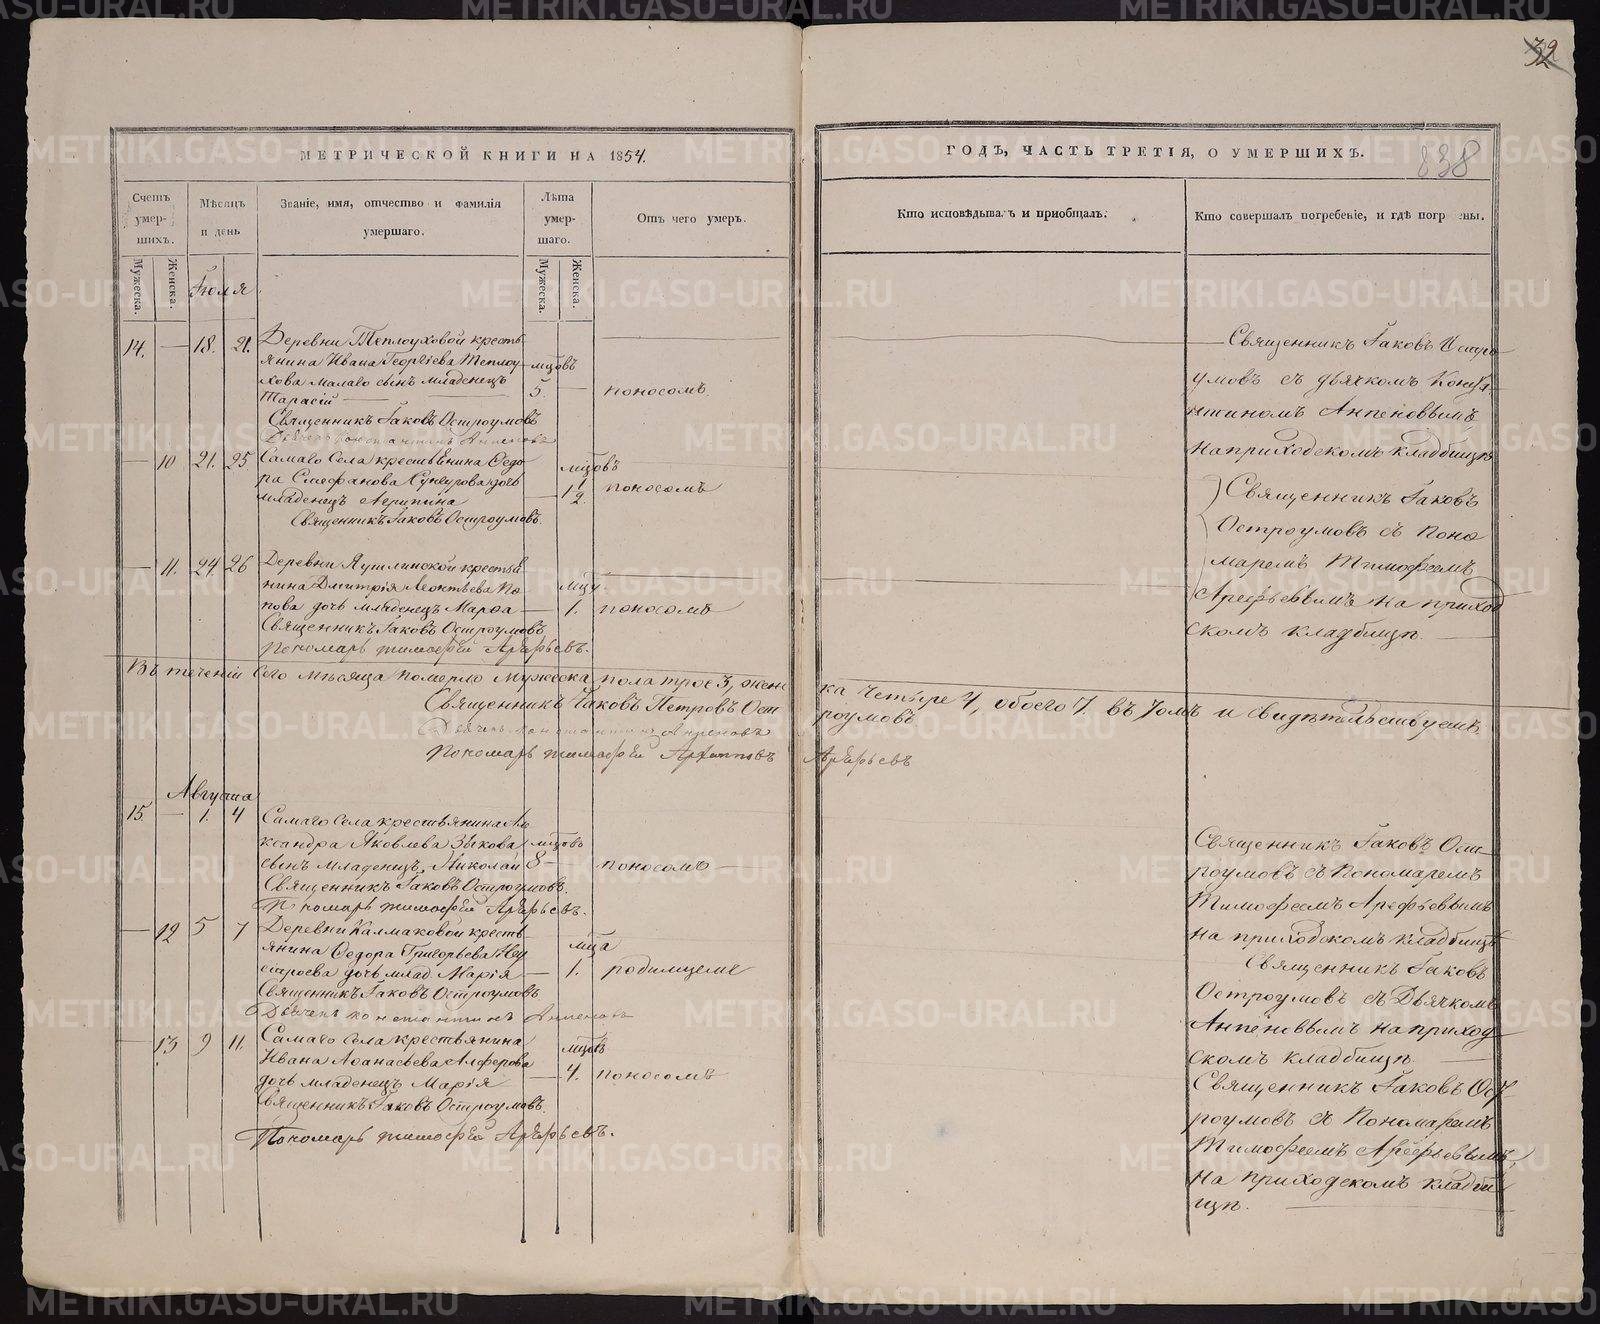 32
МЕТРИЧЕСКОЙ КНИГИ НА 1854.
ГОДЪ, ЧАСТЬ ТРЕТІЯ, О УМЕРШИХЪ.
838
Счетъ умер-шихъ.
Мужеска.
Женска.
Мѣсяцъ и день
Званіе, имя, отчество и фамилія умершаго.
Лѣта умер-шаго.
Мужеска.
Женска.
Отъ чего умеръ.
Кто исповѣдывалъ и пріобщалъ.
Кто совершалъ погребеніе, и гдѣ погребены.
Іюля
14. — 18. 21. Деревни Теплоуховой кресть
янина Ивана Георгіева Теплоу мцовъ
хова малаго сынъ младенецъ 5 — поносомъ
Тарасій
Священникъ Іаковъ Остроумовъ
Дьячекъ Константинъ
Священникъ Іаковъ Остро
умовъ съ дьячкомъ Конста
нтиномъ
на приходскомъ кладбищѣ
— 10 21. 25. Самаго Села крестьянина Ѳедо мцовъ
ра Стефанова дочь — 1/2. поносомъ
младенецъ
Священникъ Іаковъ Остроумовъ.
Священникъ Іаковъ
Остроумовъ съ Поно
маремъ Тимофеемъ
Арефьевымъ на приход
скомъ кладбищѣ.
— 11. 24. 26 Деревни крестья
нина Дмитрія Леонтьева По мцу.
пова дочь младенецъ Марѳа — 1. поносомъ
Священникъ Іаковъ Остроумовъ
Пономарь Тимофей Арефьевъ.
Въ теченіи сего мѣсяца померло мужеска пола трое 3, женс
ка четыре 4, обоего 7. въ томъ и свидѣтельствуемъ
Священникъ Іаковъ Петровъ Ост
роумовъ
Дьячекъ Константинъ
Пономарь Тимофей Архиповъ Арефьевъ
Августа
15 — 1. 4 Самаго Села крестьянина Але
ксандра Яковлева Зыкова мцовъ
сынъ младенецъ Николай 8 — поносомъ
Священникъ Іаковъ Остроумовъ.
Пономарь Тимофей Арефьевъ.
Священникъ Іаковъ Ост
роумовъ съ Пономаремъ
Тимофеемъ Арефьевымъ
на приходскомъ кладбищѣ
— 12 5 7 Деревни Калмаковой кресть
янина Ѳедора Григорьева мца
дочь млад. Марія — 1. родимцемъ
Священникъ Іаковъ Остроумовъ
Дьячекъ Константинъ
Священникъ Іаковъ
Остроумовъ съ Дьячкомъ
на приход
скомъ кладбищѣ
— 13 9 11. Самаго Села крестьянина мцовъ
Ивана Аѳанасьева Алферова
дочь младенецъ Марія — 4. поносомъ
Священникъ Іаковъ Остроумовъ.
Пономарь Тимофей Арефьевъ.
Священникъ Іаковъ Ост
роумовъ съ Пономаремъ
Тимофеемъ Арефьевымъ
на приходскомъ кладби
щѣ.
METRIKI.GASO-URAL.RU